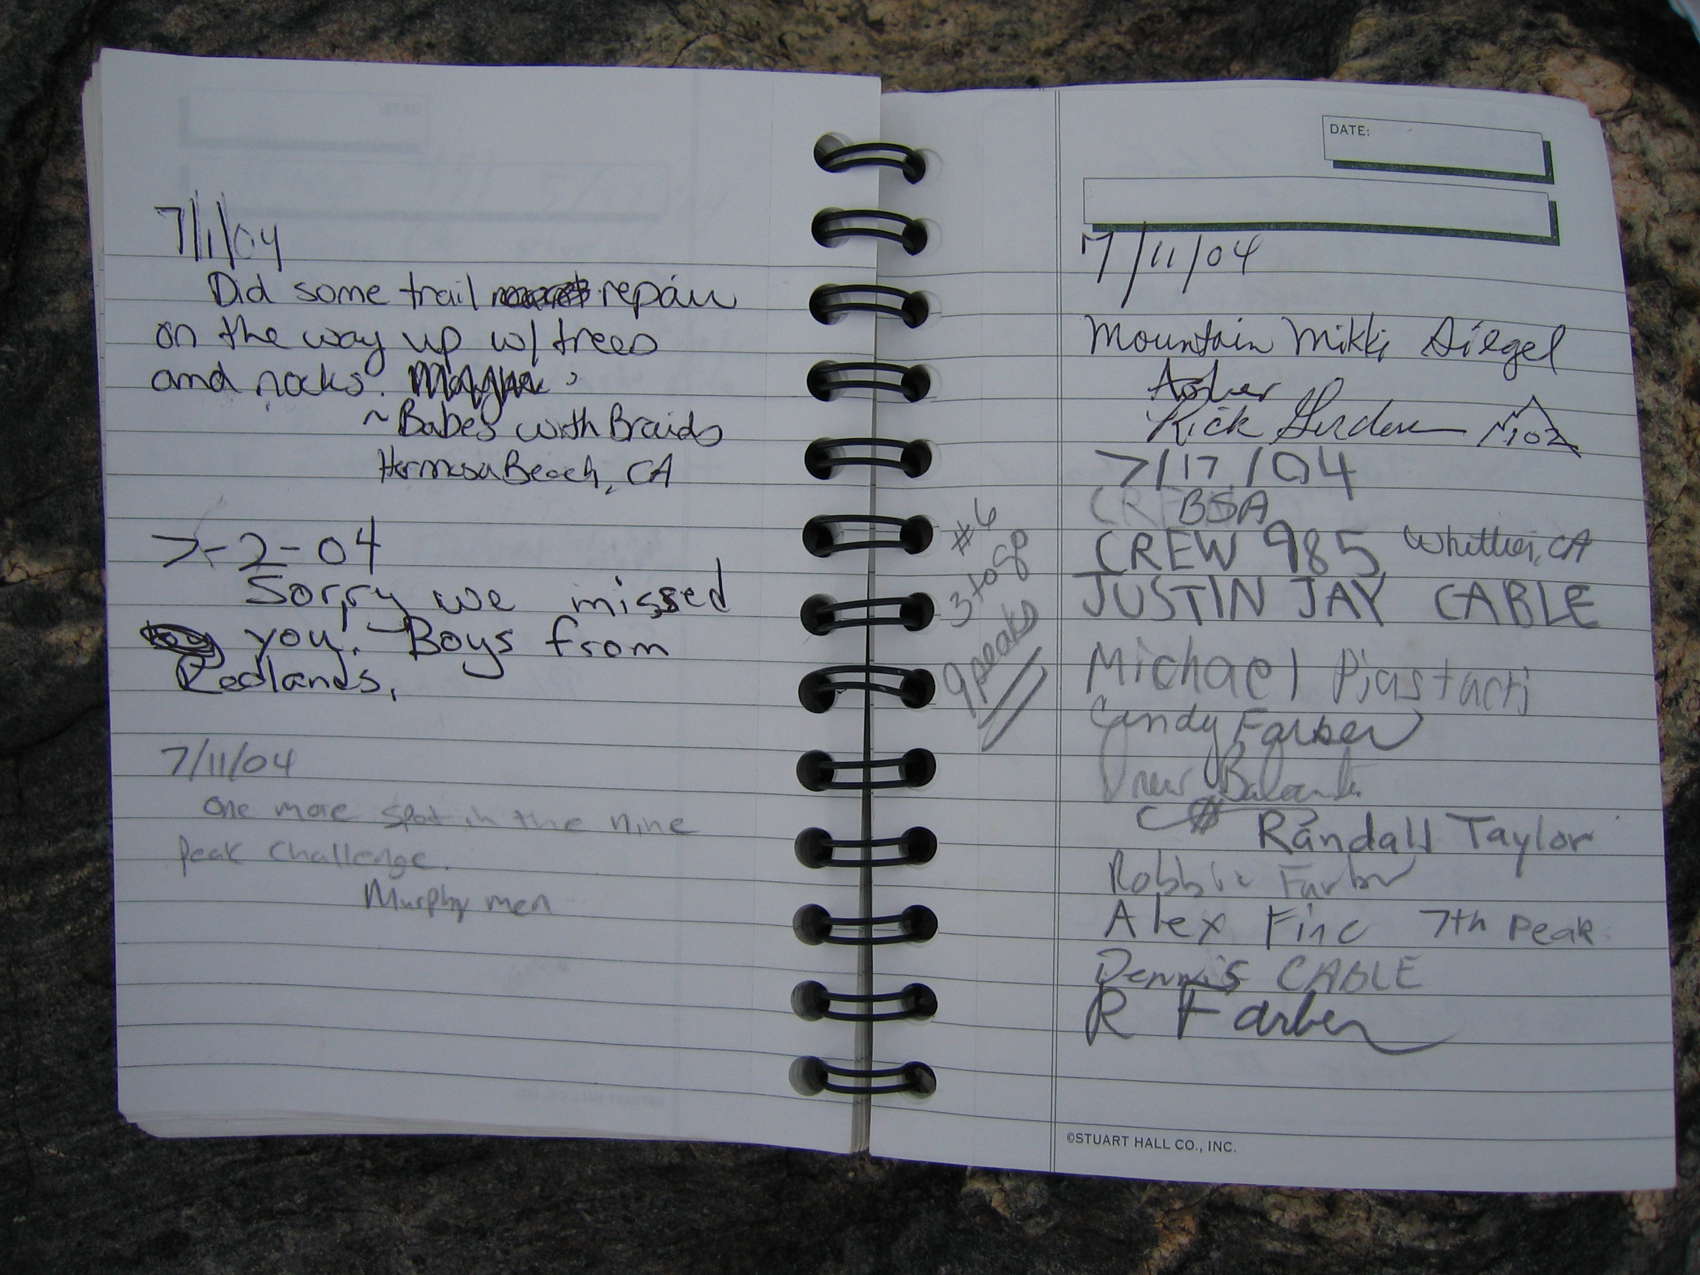 7/1/04
Did some trail repair
on the way up w/ trees
and rocks.
~Babes with Braids
Hermosa Beach, CA
7-2-04
Sorry we missed
you! -Boys from
Redlands,
7/11/04
One more spot in the nine
peak challenge.
Murphy men
DATE:
7/11/04
Mountain Mikki Siegel
Rick
7/17/04
BSA
CREW 985 Whittier, CA
JUSTIN JAY CABLE
#6
3 to go
9 peaks
Michael
Candy Farber
Drew
Randall Taylor
Robbie Farber
Alex Finc 7th Peak
Dennis CABLE
R Farber
©STUART HALL CO., INC.